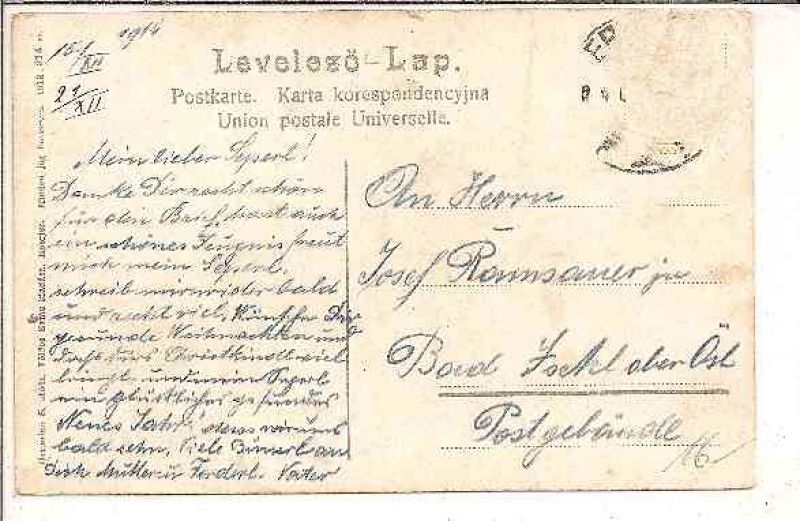 15/XII 1914
21/XII
Levelező-Lap.
Postkarte. Karta korespondencyjna
Union postale Universelle.
Mein lieber Seperl!
Danke Dir recht schön
für den Brief, hast auch
ein schönes Zeugnis freut
mich mein Seperl.
schreib nur wieder bald
und recht viel. Wünsche Dir
gesunde Weihnachten und
dass das Christkindl viel
bringt und mein Seperl
ein glückliches gesundes
Neues Jahr, dass wir uns
bald sehn, Viele Busserl an
Dich Mutter u Ferderl. Vater
An Herrn
Josef Ramsauer ju
Bad Ischl ober Öst
Postgebäude
16